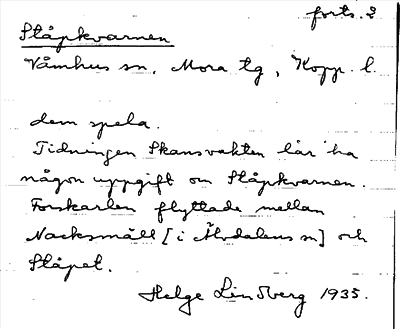 forts. 2
Ståpkvarnen
Våmhus sn, Mora tg, Kopp. l.
dem spela.
Tidningen Skansvakten lär ha
någon uppgift om Ståpkvarnen.
Forskarlen flyttade mellan
Nacksmäll [i Älvdalens sn] och
Ståpet.
Helge Lindberg 1935.